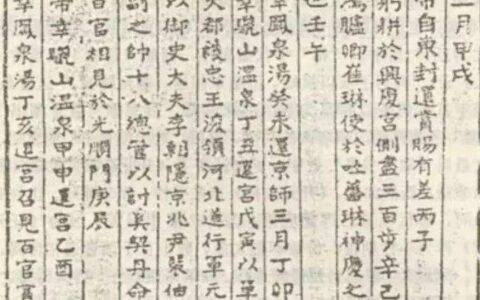 二月甲戌
帝自東封還賞賜有差丙子
躬耕於興慶宮側盡三百步辛己
鴻臚卿崔琳使於吐蕃琳神慶之
也壬午
幸鳳泉湯癸未還京師三月丁卯
幸驪山溫泉丁丑還宮戊寅以單
大都護忠王浚領河北道行軍元
以御史大夫李朝隱京兆尹裴伷
討之帥十八總管以討奚契丹命
百官相見於光順門庚辰
帝幸驪山溫泉甲申還宮乙酉
幸鳳泉湯丁亥還宮召見百官